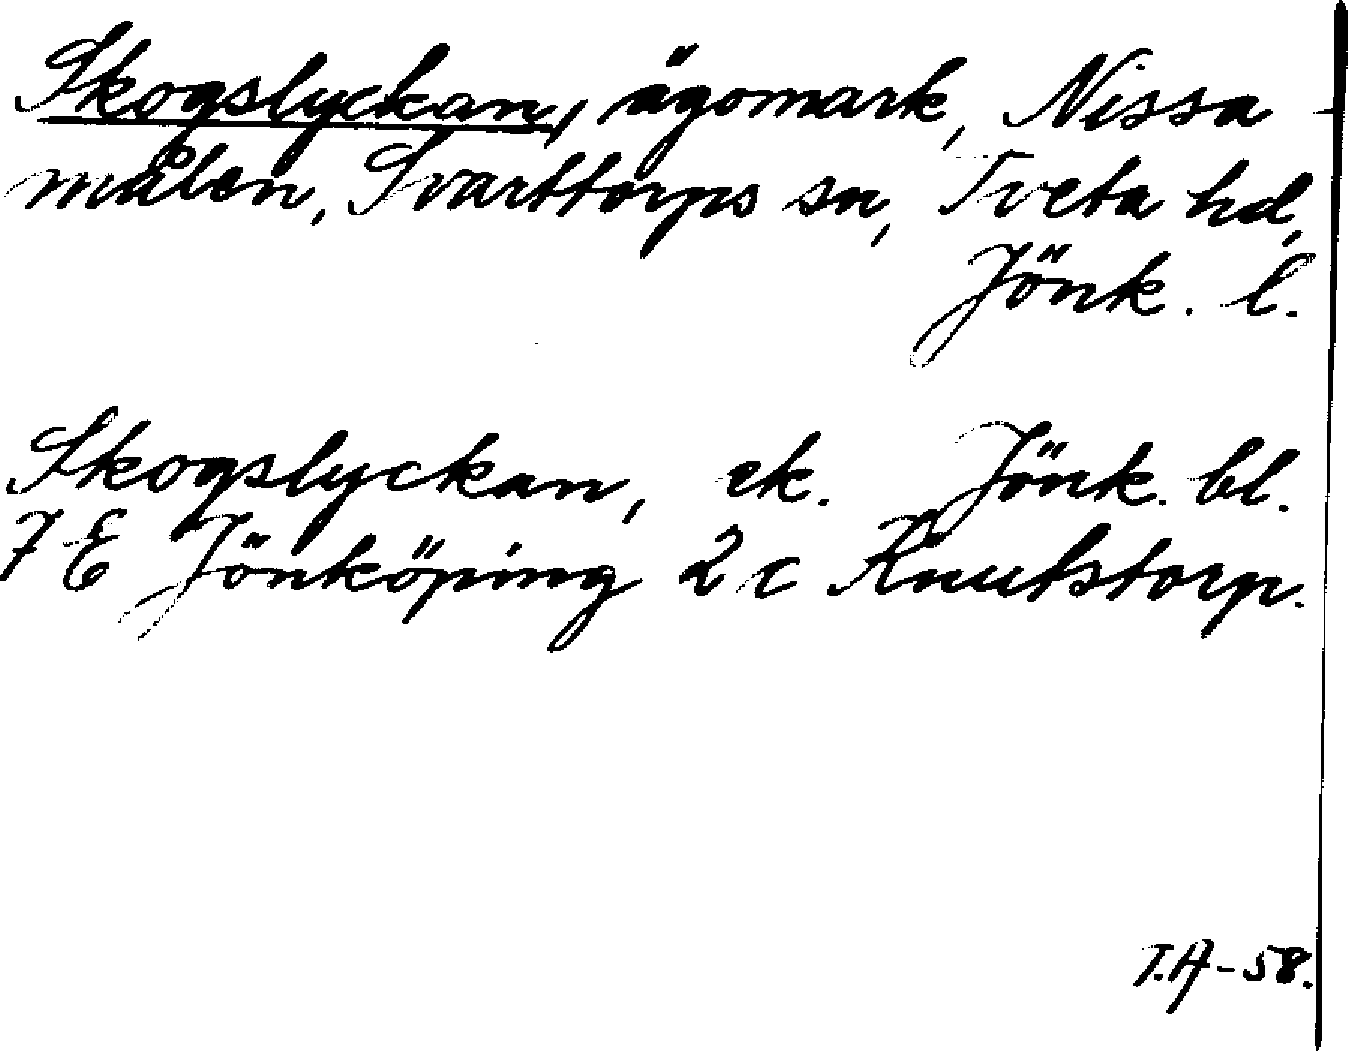 Skogslyckan, ägomark, Nissa-
målen, Svarttorps sn, Tveta hd,
Jönk. l.
Skogslyckan, ek. Jönk. bl.
7 E Jönköping 2 c Knutstorp.
T.A-58.